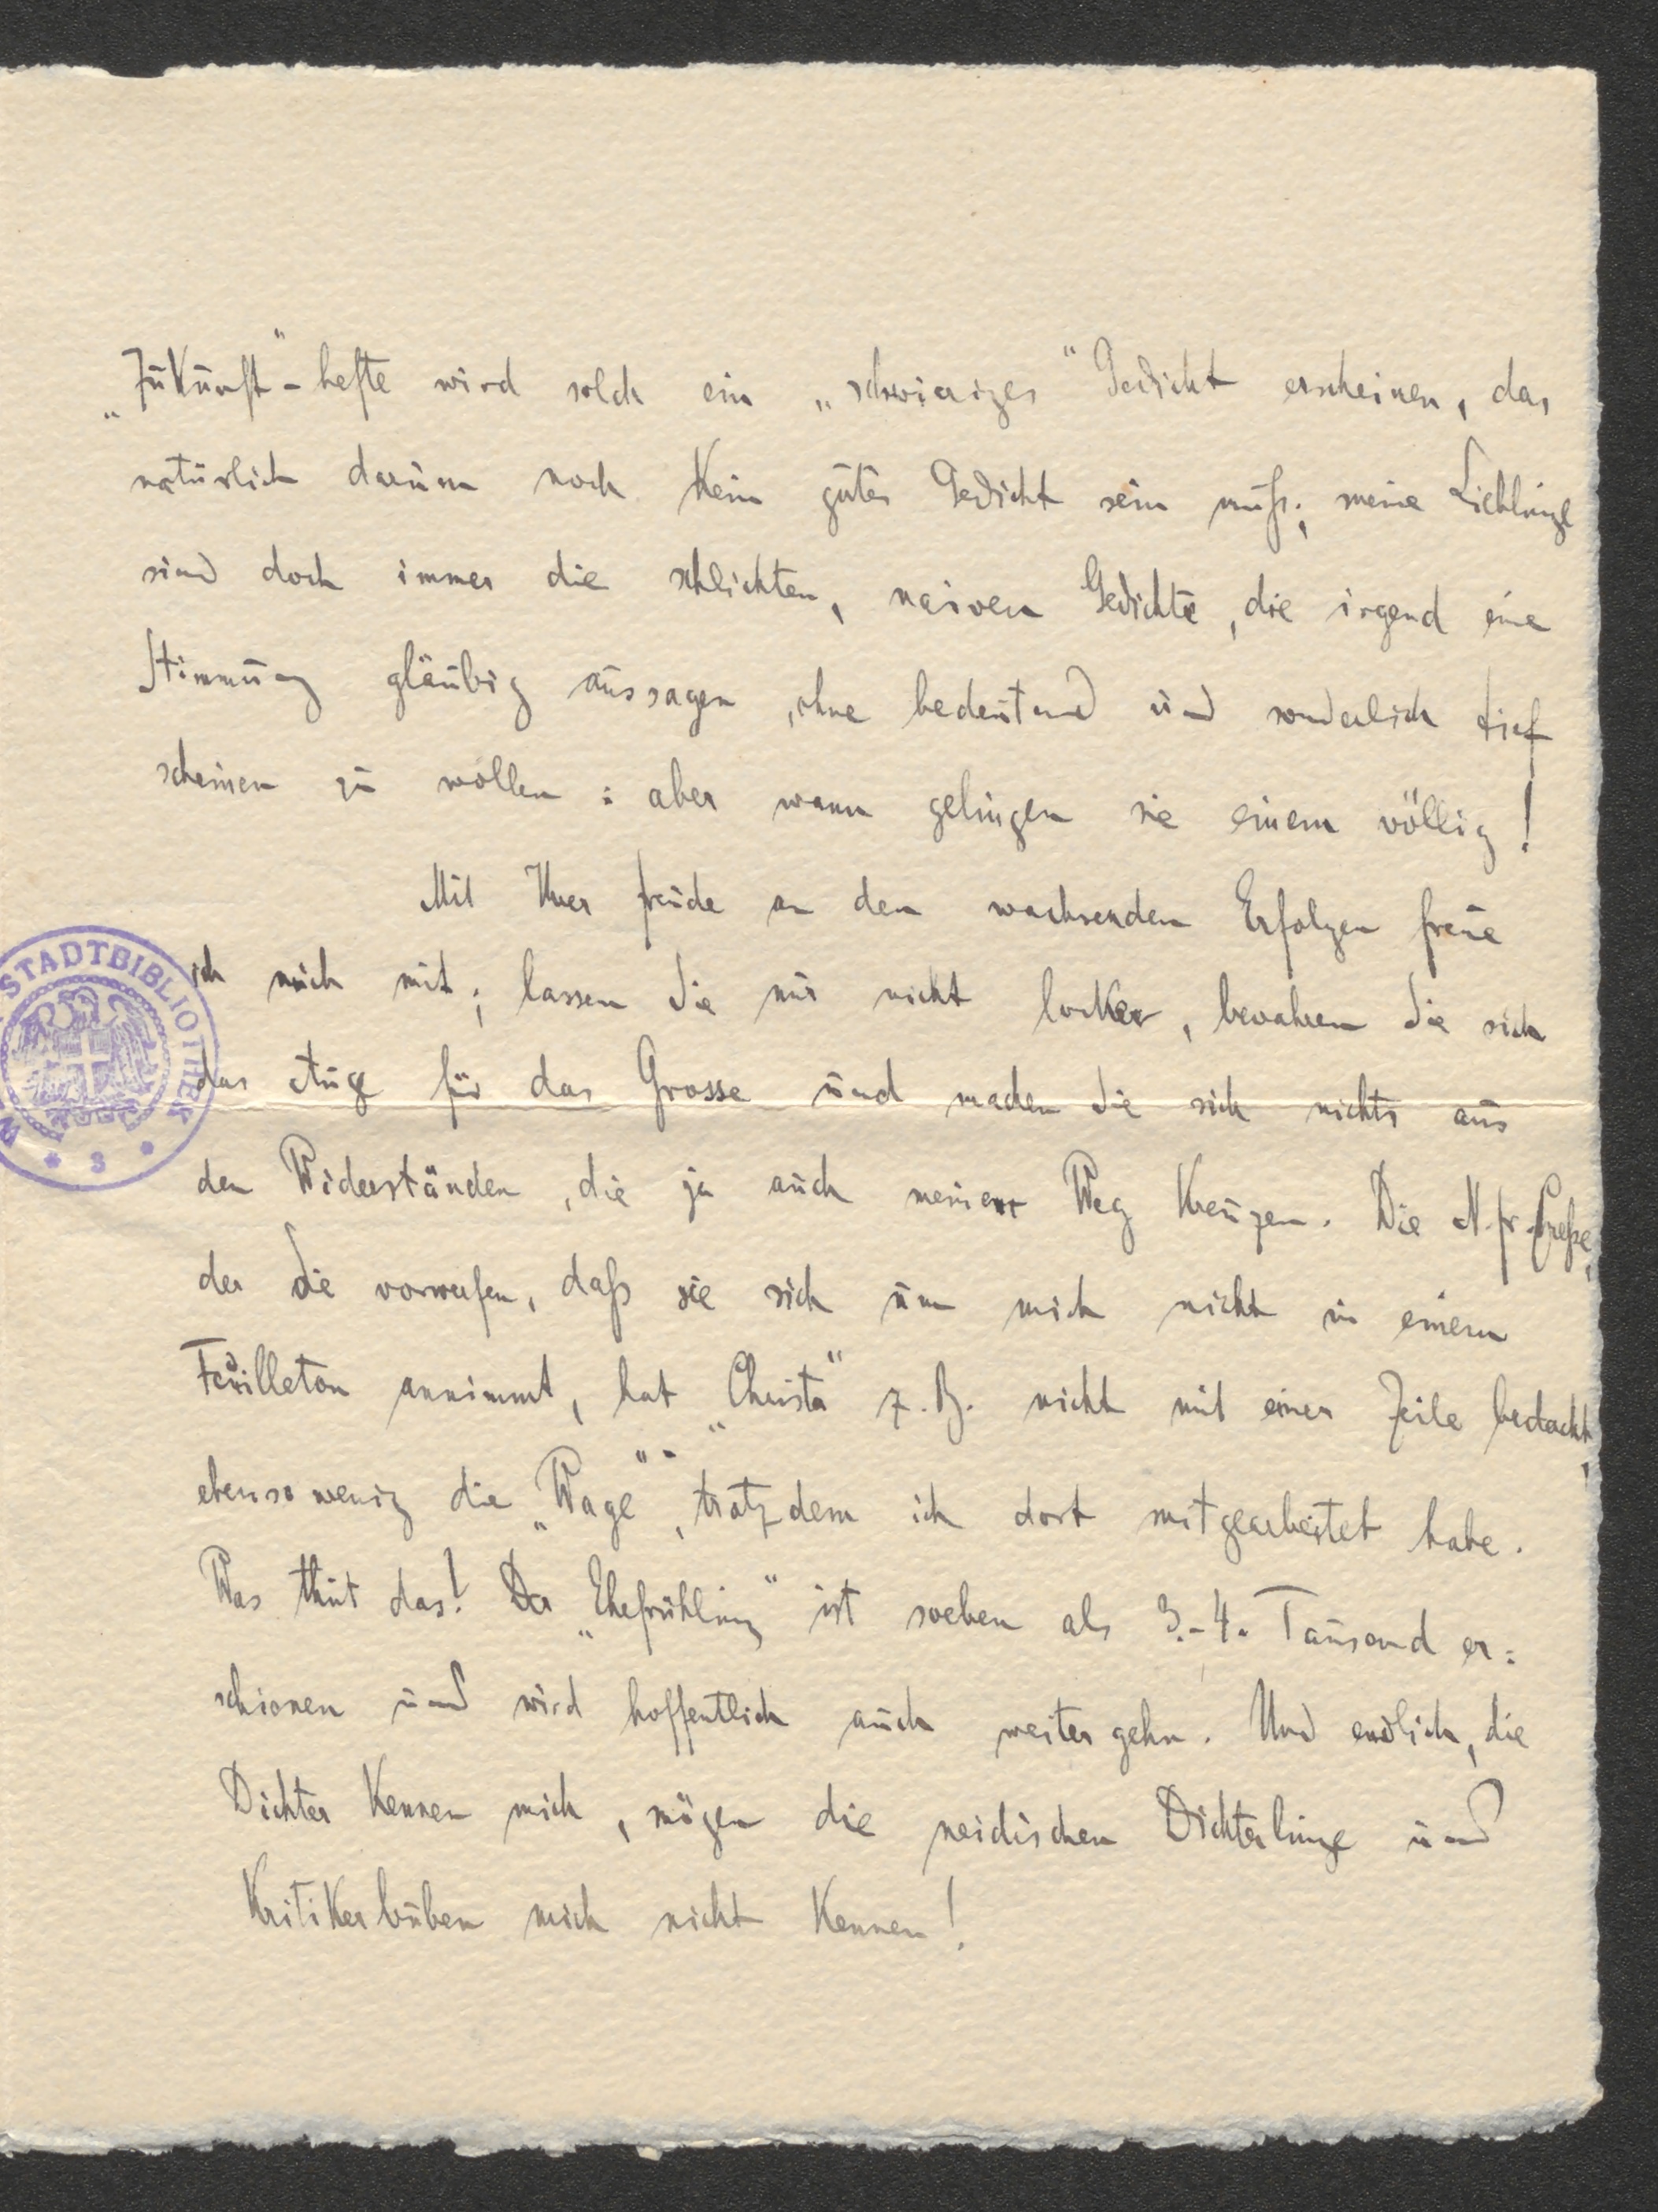 „Zukunft"-hefte wird solch ein „schwieriges" Gedicht erscheinen, das
natürlich darum noch kein gutes Gedicht sein muß; meine Lieblinge
sind doch immer die schlichten, naiven Gedichte, die irgend eine
Stimmung gläubig aussagen, ohne bedeutend und sonderlich tief
scheinen zu wollen: aber wann gelingen sie einem völlig!
Mit Ihrer Freude an den wachsenden Erfolgen freue
ich mich mit; lassen Sie nur nicht locker, bewahren Sie sich
das Auge für das Grosse und machen Sie sich nichts aus
den Widerständen, die ja auch meinen Weg kreuzen. Die N. fr. Preße,
der Sie vorwerfen, daß sie sich um mich nicht in einem
Feuilleton annimmt, hat „Christa" z. B. nicht mit einer Zeile bedacht,
ebenso wenig die „Wage", trotzdem ich dort mitgearbeitet habe.
Was thut das! Der „Ehefrühling" ist soeben als 3.-4. Tausend er=
schienen und wird hoffentlich auch weiter gehn. Und endlich, die
Dichter kennen mich, mögen die neidischen Dichterlinge und
Kritikerbuben mich nicht kennen!
STADTBIBLIOTHEK
* 3 *